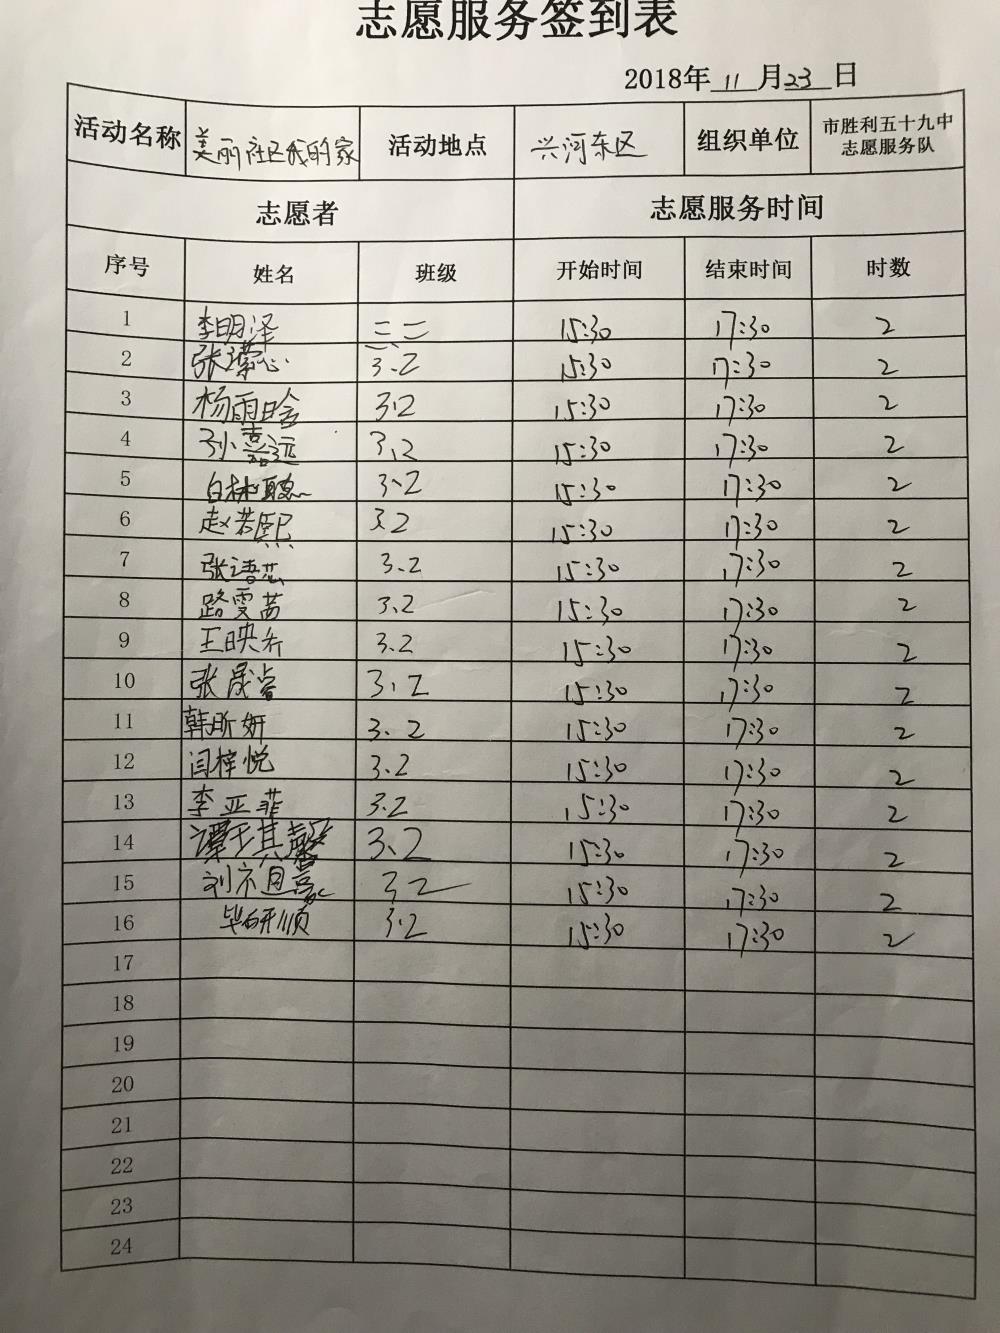 志愿服务签到表
2018年11月23日
活动名称 美丽社区我的家 活动地点 兴河东区 组织单位 市胜利五十九中志愿服务队
志愿者 志愿服务时间
序号 姓名 班级 开始时间 结束时间 时数
1 李明泽 三、二 15:30 17:30 2
2 张潆心 3、2 15:30 17:30 2
3 杨雨晗 3.2 15:30 17:30 2
4 孙嘉远 3、2 15:30 17:30 2
5 白林聪 3、2 15:30 17:30 2
6 赵若熙 3、2 15:30 17:30 2
7 张语芯 3、2 15:30 17:30 2
8 路雯茜 3、2 15:30 17:30 2
9 王映乔 3、2 15:30 17:30 2
10 张晟睿 3、2 15:30 17:30 2
11 韩昕妍 3、2 15:30 17:30 2
12 闫梓悦 3、2 15:30 17:30 2
13 李亚菲 3.2 15:30 17:30 2
14 谭 其馨 3、2 15:30 17:30 2
15 刘 3 2 15:30 17:30 2
16 毕研顺 3.2 15:30 17:30 2
17
18
19
20
21
22
23
24